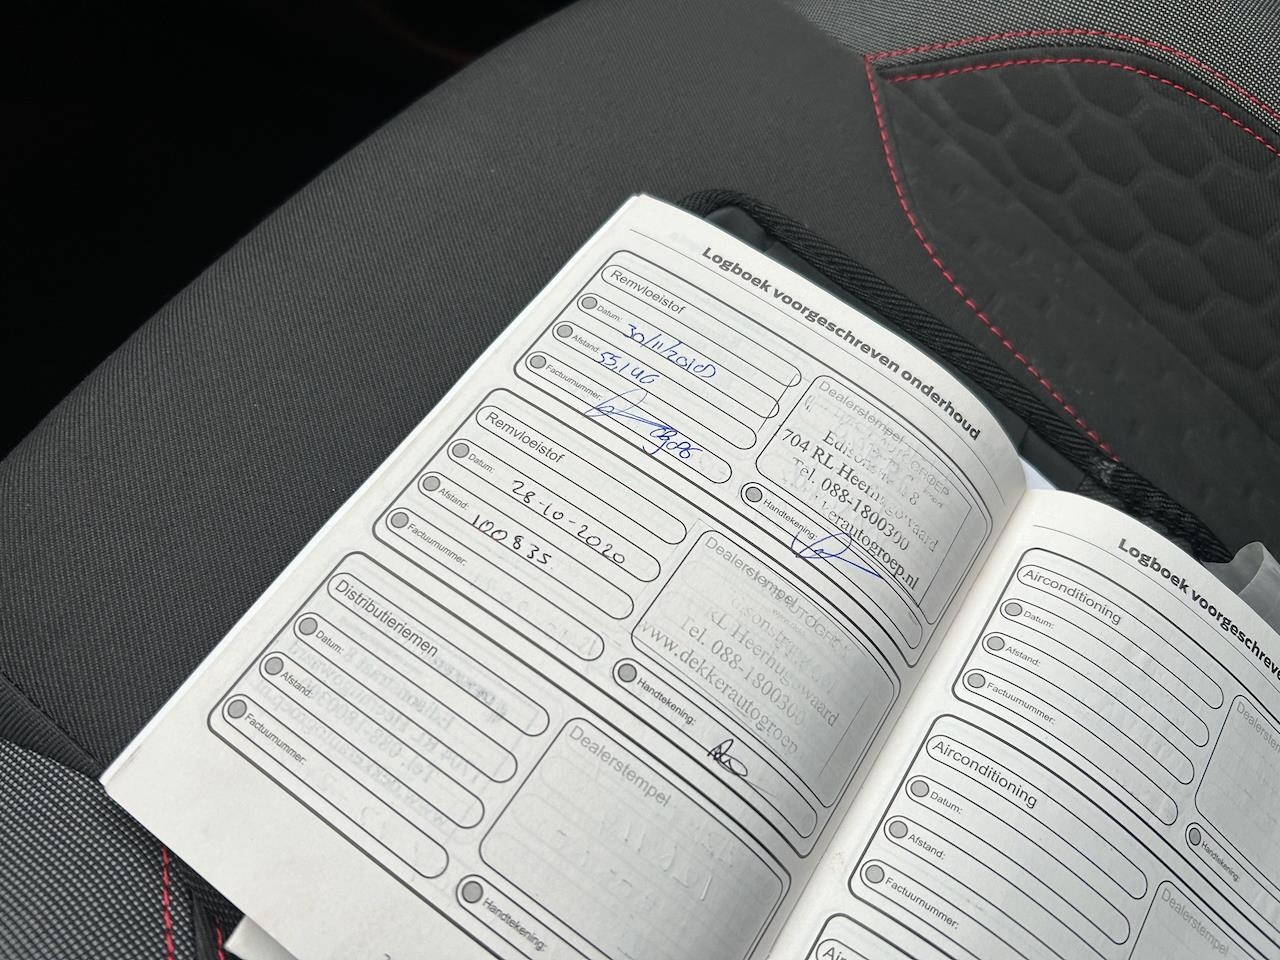 Logboek voorgeschreven onderhoud
Remvloeistof
Datum:
Afstand: 55.146
Factuurnummer:
Dealerstempel
704 RL Heerhugowaard
Tel. 088-1800300
erautogroep.nl
Handtekening:
Remvloeistof
Datum: 28-10-2020
Afstand: 100835
Factuurnummer:
Dealerstempel
RL Heerhugowaard
Tel. 088-1800300
www.dekkerautogroep
Handtekening:
Distributieriemen
Datum:
Afstand:
Factuurnummer:
Dealerstempel
Handtekening:
Logboek voorgeschreve
Airconditioning
Datum:
Afstand:
Factuurnummer:
Dealerstempel
Handtekening:
Airconditioning
Datum:
Afstand:
Factuurnummer:
Dealerstempel
Air